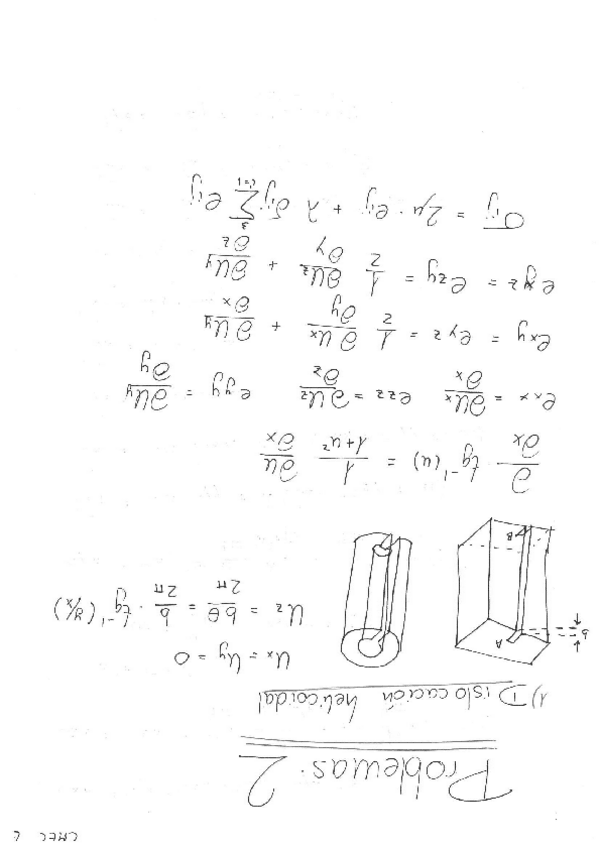 CAEC 2
Problemas. 2
1) Dislocación helicoidal
Ux = Uy = 0
Uz = bθ/2π = b/2π · tg⁻¹(y/x)
b
A
B
∂/∂x tg⁻¹(u) = 1/(1+u²) ∂u/∂x
exx = ∂Ux/∂x   ezz = ∂Uz/∂z   eyy = ∂Uy/∂y
exy = eyz = 1/2 ∂Ux/∂y + ∂Uy/∂x
eyz = ezy = 1/2 ∂Uz/∂y + ∂Uy/∂z
σij = 2μ · eij + λ δij Σ³ᵢ₌₁ eij